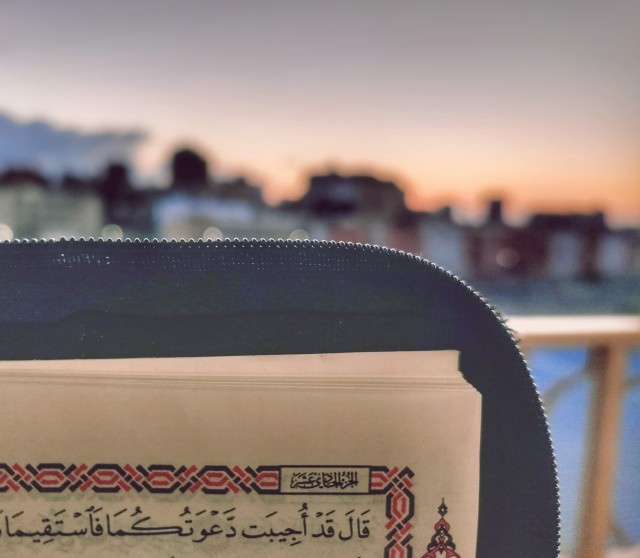 الجزء الحادي عشر
قَالَ قَدۡ أُجِيبَت دَّعۡوَتُكُمَا فَٱسۡتَقِيمَا